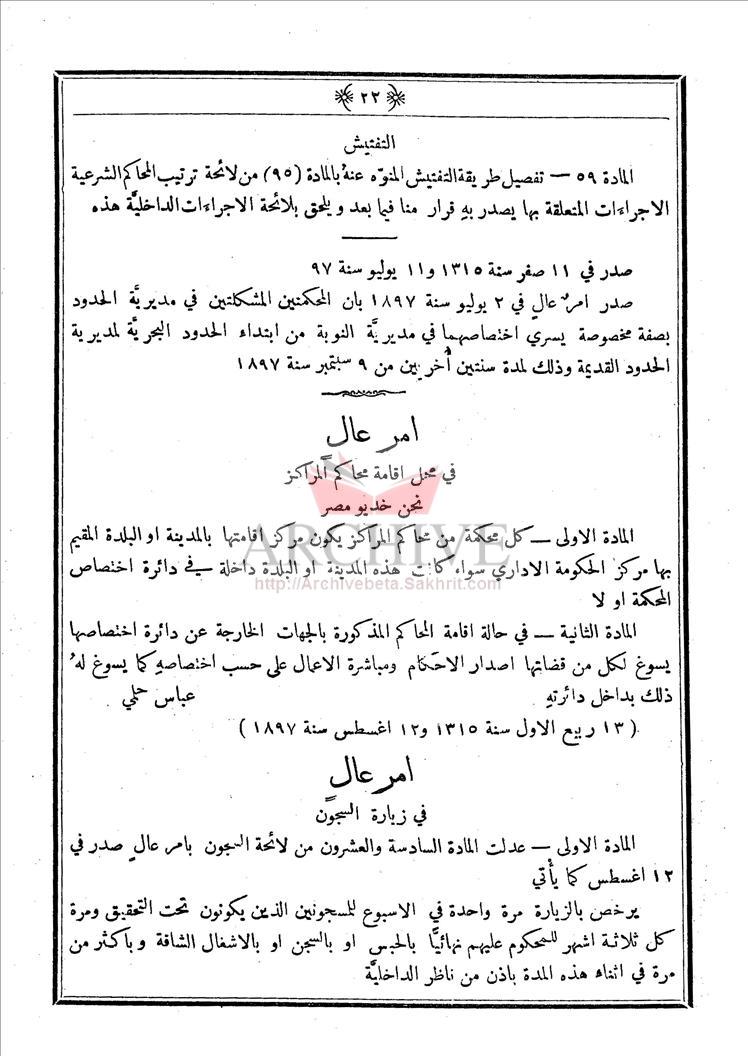 ٢٣
التفتيش
المادة ٥٩ — تفصيل طريقة التفتيش المنوّه عنهُ بالمادة (٩٥) من لائحة ترتيب المحاكم الشرعية
الاجراءات المتعلقة بها يصدر بهِ قرار منا فيما بعد ويلحق بلائحة الاجراءات الداخليَّة هذه
صدر في ١١ صفر سنة ١٣١٥ و١١ يوليو سنة ٩٧
صدر امرٌ عالٍ في ٢ يوليو سنة ١٨٩٧ بان المحكمتين المشكلتين في مديريَّة الحدود
بصفة مخصوصة يسري اختصاصهما في مديريَّة النوبة من ابتداء الحدود البحريَّة لمديرية
الحدود القديمة وذلك لمدة سنتين أُخريين من ٩ سبتمبر سنة ١٨٩٧
امر عال
في محل اقامة محاكم المراكز
نحن خديو مصر
المادة الاولى — كل محكمة من محاكم المراكز يكون مركز اقامتها بالمدينة او البلدة المقيم
بها مركز الحكومة الاداري سواء كانت هذه المدينة او البلدة داخلة في دائرة اختصاص
المحكمة او لا
المادة الثانية — في حالة اقامة المحاكم المذكورة بالجهات الخارجة عن دائرة اختصاصها
يسوغ لكل من قضاتها اصدار الاحكام ومباشرة الاعمال على حسب اختصاصهِ كما يسوغ لهُ
ذلك بداخل دائرتهِ عباس حلمي
(١٣ ربيع الاول سنة ١٣١٥ و١٢ اغسطس سنة ١٨٩٧)
امر عال
في زيارة السجون
المادة الاولى — عدلت المادة السادسة والعشرون من لائحة السجون بامر عالٍ صدر في
١٢ اغسطس كما يأتي
يرخص بالزيارة مرة واحدة في الاسبوع للمسجونين الذين يكونون تحت التحقيق ومرة
كل ثلاثة اشهر للمحكوم عليهم نهائيًّا بالحبس او بالسجن او بالاشغال الشاقة وباكثر من
مرة في اثناء هذه المدة باذن من ناظر الداخليَّة
ARCHIVE
http://Archivebeta.Sakhrit.com